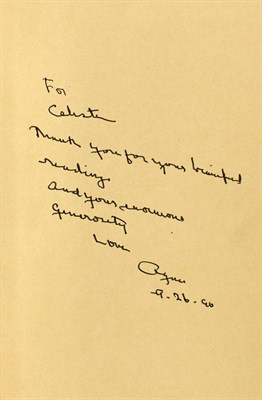 For
Celeste
Thank you for your beautiful
reading
and your enormous
generosity
Love
Agnes
9.26.90